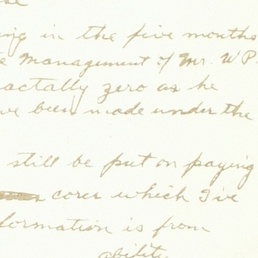 se
ing in the five months
e management of Mr. W P.
ractally zero as he
ve been made under the
still be put on paying
cores which I've
formation is from
ability